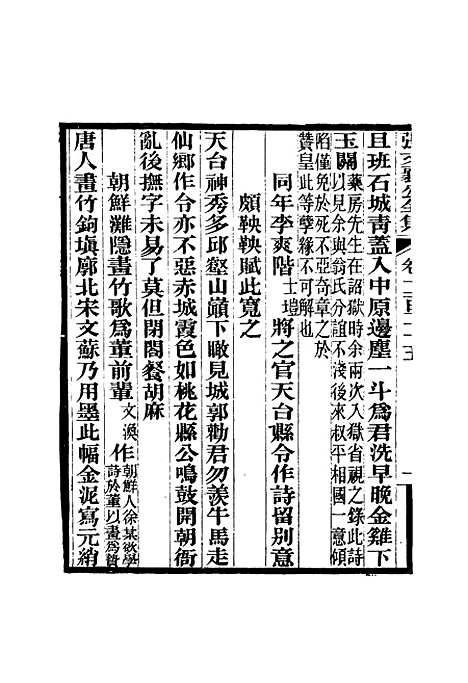 張文襄公全集 卷二百二十五
且班石城靑蓋入中原邊塵一斗爲君洗早晚金雞下
玉關
藥房先生在詔獄時余兩次入獄省視之錄此詩
以見余與翁氏分誼不淺後來叔平相國一意傾
陷僅免於死不亞奇章之於
贊皇此等孽緣不可解也
同年李爽階士瑎將之官天台縣令作詩留別意
頗鞅鞅賦此寬之
天台神秀多邱壑山巔下瞰見城郭勸君勿羨牛馬走
仙鄉作令亦不惡赤城霞色如桃花縣公鳴鼓開朝衙
亂後撫字未易了莫但閉閤餐胡麻
朝鮮灘隱畫竹歌爲董前輩文渙作朝鮮人徐某欲學詩於董以畫爲贄
唐人畫竹鉤塡廓北宋文蘇乃用墨此幅金泥寫元綃